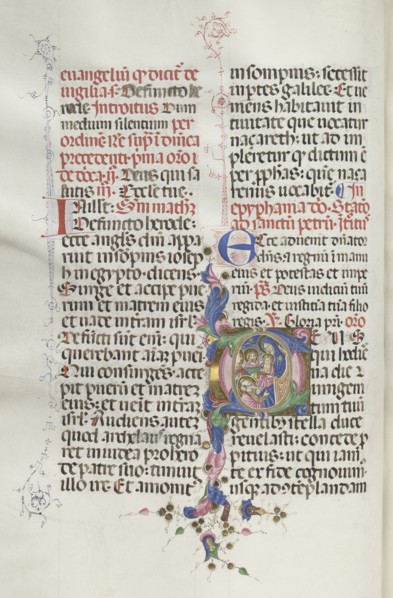 euangeliũ qͦ dicitͬ de
uigilia .s. Defuncto he
rode. Introitus Dum
medium silentium per
ordinē
precedenti p̃ma or̃o
Deus qui sa
lutis
In illo t̃. Sm̃ mathz̃
Defuncto herode:
ecce angl̃s dn̄i appa
ruit in sõpnis ioseph
in egypto: dicens.
Surge et accipe pue
rum et matrem eius
et uade in terram isrl̃.
Defũcti sũt eni: qui
querebant aĩaz pueri.
Qui consurgens: acce
pit puerũ et matrez
eius: et uenit in terrã
isrl̃. Audiens autez
quod archelaus regna
ret in iudea pro hero
de patre suo: timuit
illo ire. Et amonitꝰ
in sompnis: secessit
in ptes galilee. Et ue
niens habitauit in
ciuitate que uocatur
naçareth: ut ad im
pleretur qͦ dictum ẽ
per pphas: qm̃ naça
renus uocabit͛. In
epyphania dñi. Statõ
ad sanctũ petrũ. Itͬitꝰ
Ecce aduenit dñator
dñs: et regnũ in manu
eius et potestas et impe
riũ. ps̃ Deus iudiciũ tuũ
regi da: et iustitiã tuã filio
regis. V̷. Gloria pri. or̃o
Deus
qui hodie
rna die u
nigeni
tum tuũ
gentibꝰ stella duce
reuelasti: concede p
pitius: ut qui iam
te ex fide cognouim
usqꝫ ad cõtẽplandam